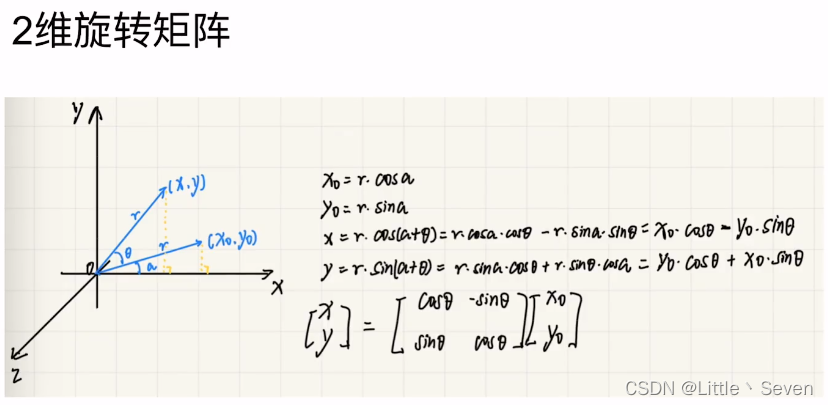 2维旋转矩阵
y
(x.y)
r
(x₀.y₀)
θ
r
a
0
x
z
x₀ = r. cosa
y₀ = r. sina
x = r. cos(a+θ) = r.cosa.cosθ - r.sina.sinθ = x₀. cosθ - y₀.sinθ
y = r. sin(a+θ) = r.sina.cosθ + r.sinθ.cosa = y₀. cosθ + x₀.sinθ
[x y] = [cosθ -sinθ sinθ cosθ] [x₀ y₀]
CSDN @Little丶Seven